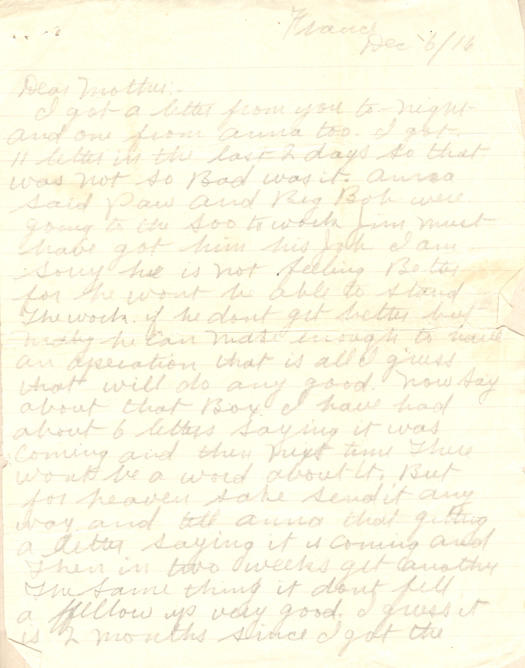 France
Dec 6/16
Dear Mother:-
I got a letter from you to-night
and one from anna too. I got
11 letter in the last 2 days so that
was not so Bad was it. anna
said Paw and Big Bob were
going to the Soo to work Jim must
have got him his job I am
sorry he is not feeling Better
for he wont be able to stand
The work if he dont get better but
he can make enough to have
an operation that is all I guess
that will do any good. Now say
about that Box. I have had
about 6 letters saying it was
coming and then next time There
wont be a word about it. But
for heaven sake send it any
way and tell anna that getting
a letter saying it is coming and
Then in two weeks get another
The same thing it dont fill
a fellow up very good. I guess it
is 2 months since I got the